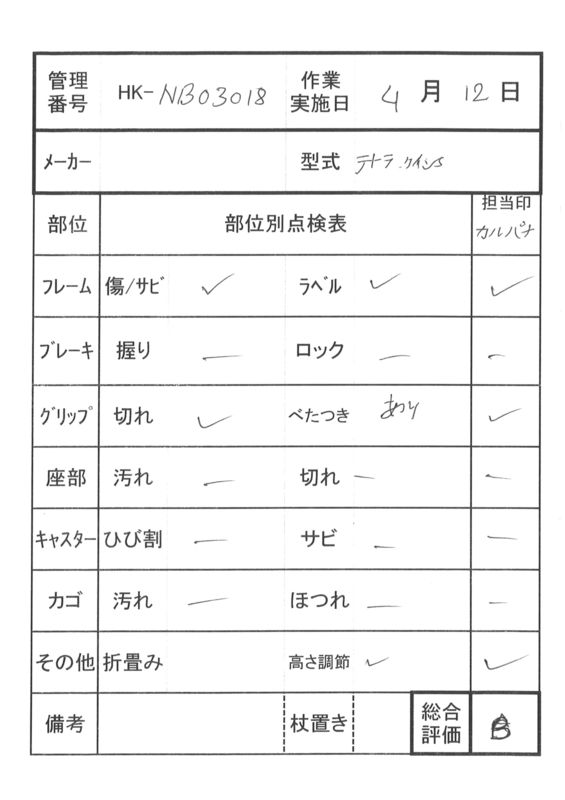 管理番号 HK-NB03018 作業実施日 4月12日
ﾒｰｶｰ 型式
部位 部位別点検表 担当印 カルパナ
ﾌﾚｰﾑ 傷/ｻﾋﾞ ✓ ﾗﾍﾞﾙ ✓ ✓
ﾌﾞﾚｰｷ 握り — ロック — —
ｸﾞﾘｯﾌﾟ 切れ ✓ べたつき あり ✓
座部 汚れ — 切れ — —
ｷｬｽﾀｰ ひび割 — サビ — —
カゴ 汚れ — ほつれ — —
その他 折畳み 高さ調節 ✓ ✓
備考 杖置き 総合評価 B